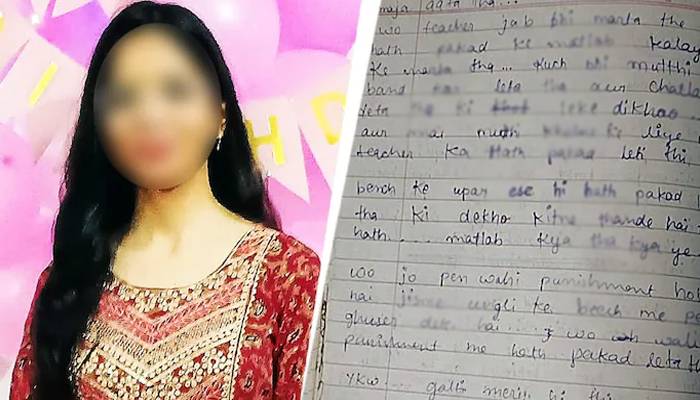 maja aata tha...
wo teacher jab bhi marta the
hath pakad ke matlab kalay
ke marta tha... kuch bhi mutthi
band kar leta tha aur challa
deta tha ki leke dikhao
aur mutthi ke liye
teacher ka hath pakad leti thi
bench ke upar ese hi hath pakad
tha ki dekho kitne thande hai
hath... matlab kya tha kya ye
woo jo pen wahi punishment hot
hai jisme ungli ke beech me pe
ghuser dete hai... wo wali
punishment me hath pakad leta th
Ykw... galti meri hi thi
H D